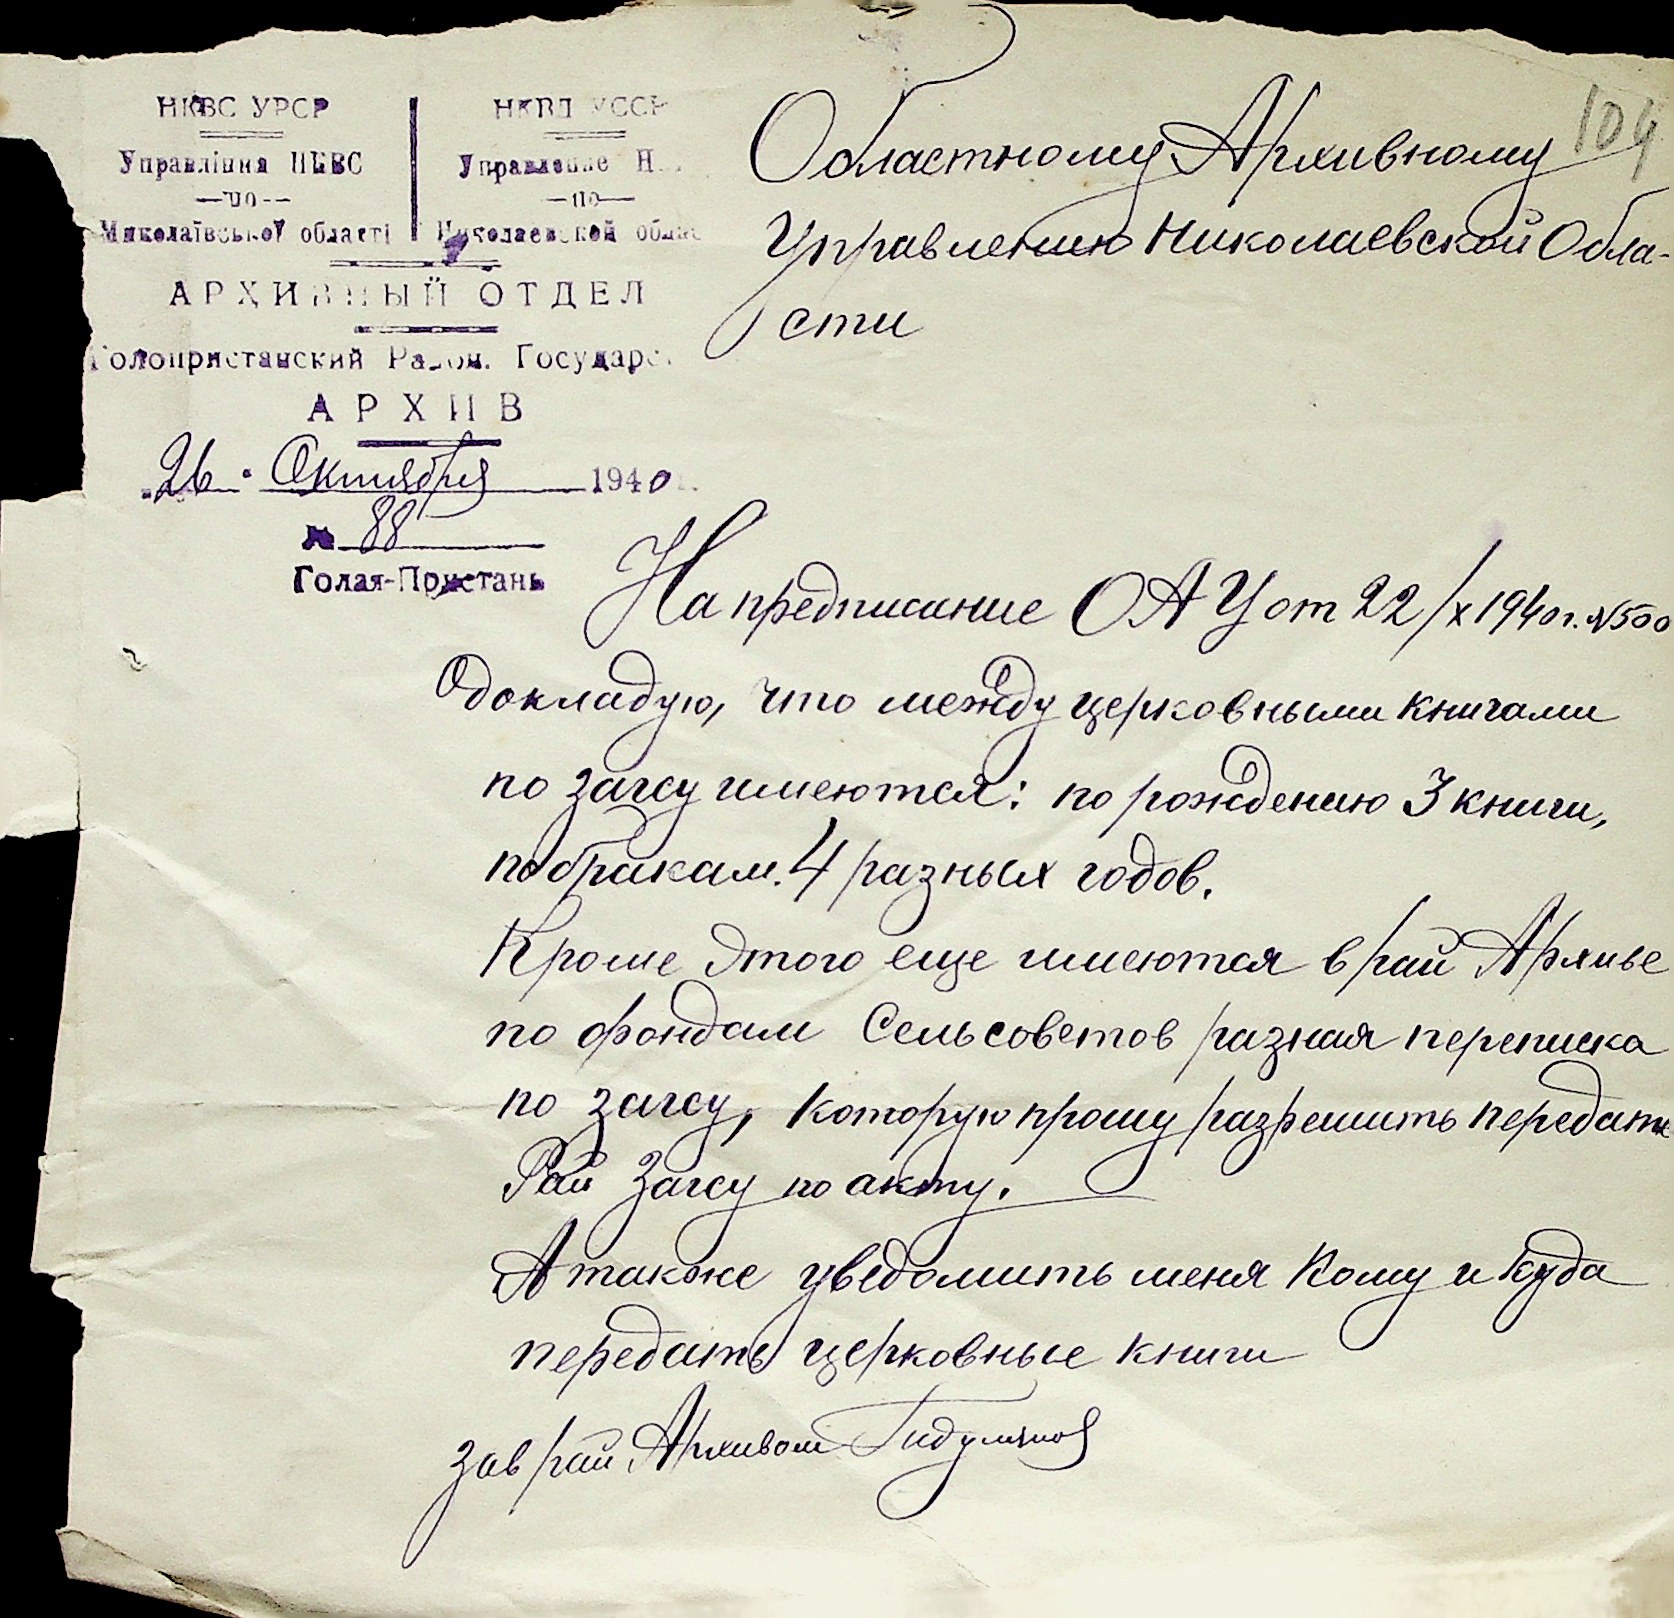 НКВС УРСР
Управління НКВС
—по—
Миколаївської області
НКВД УССР
Управление Н
—по—
Николаевской облас
АРХИВНЫЙ ОТДЕЛ
Голопристанский Район. Государс
АРХИВ
„26" Октября 1940
№ 88
Голая-Пристань
104
Областному Архивному
Управлению Николаевской Обла-
сти
На предписание ОАУ от 22/X 1940 г. №500
Докладую, что между церковными книгами
по загсу имеются: по рождению 3 книги,
по бракам. 4 разных годов.
Кроме этого еще имеются в рай Архиве
по фондам Сельсоветов разная переписка
по загсу, которую прошу разрешить передать
Рай Загсу по акту.
А также уведомить меня Кому и Куда
передать церковные книги
Зав рай Архивом